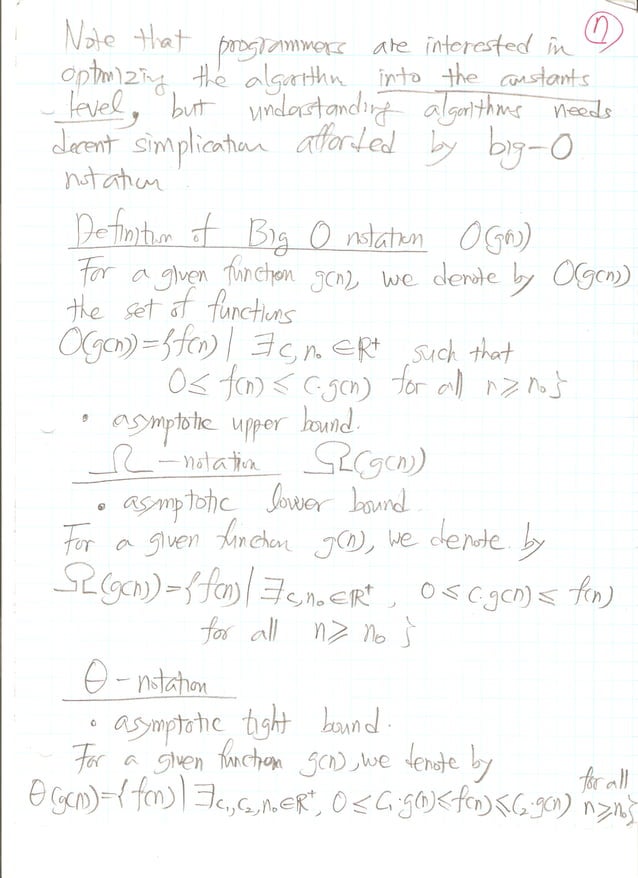 Note that programmers are interested in
optimizing the algorithm into the constants
level, but understanding algorithms needs
decent simplication afforted by big-O
notation
Definition of Big O notation O(g(n))
For a given function g(n), we denote by O(g(n))
the set of functions
O(g(n))={f(n) | ∃c,n₀ ∈R⁺ such that
0≤ f(n) ≤ c·g(n) for all n≥n₀}
• asymptotic upper bound.
Ω -notation Ω(g(n))
• asymptotic lower bound.
For a given function g(n), we denote by
Ω(g(n))={f(n) | ∃c,n₀∈R⁺, 0≤c·g(n)≤ f(n)
for all n≥ n₀ }
θ - notation
• asymptotic tight bound.
For a given function g(n), we denote by
θ(g(n))={f(n) | ∃c₁,c₂,n₀∈R⁺, 0≤C₁·g(n)≤f(n)≤C₂·g(n) for all n≥n₀}